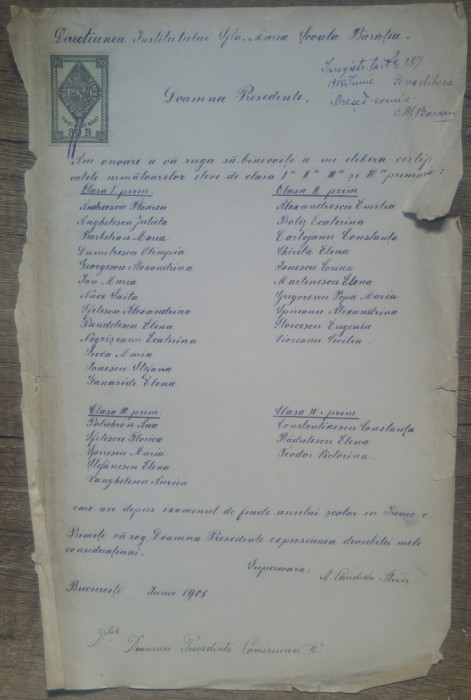 Direcțiunea Institutului Sfta. Maria Școala Bărația.
Inregistr. la No 287
1908 Iunie Se va elibera
Președ. comis.
30 B
Doamna Presedente,
Am onoare a vă ruga să binevoiți a-mi elibera certifi
catele următoarelor eleve de clasa I-a II-a III-a și IV-a primară:
Clasa I prim. Clasa II prim.
Andreescu Florica Alexandrescu Emilia
Anghelescu Julieta Boteș Ecaterina
Barbilian Maria Cartojanu Constanța
Dumitrescu Olimpia Chiriță Elena
Georgescu Alexandrina Ionescu Corina
Ion Maria Martinescu Elena
Grigorescu Popa Maria
Sfetescu Alexandrina Spireanu Alexandrina
Pandelescu Elena Stoicescu Eugenia
Negrișeanu Ecaterina Vioreanu Cecilia.
Maria
Ionescu Stefana
Elena
Clasa III prim. Clasa IV prim.
Polichron Ana Constantinescu Constanța
Sfetescu Florica Rădulescu Elena
Spirescu Maria Teodor Victorina.
Ștefănescu Elena
Langhelescu Aurica
care au depus examenul de finele anului școlar in Iunie c
Primiți vă rog, Doamna Presedente expresiunea deosebitei mele
considerațiuni.
Superioara: M. Candida Stein
București Iunie 1908
Doamnei Presedente Comisiunei